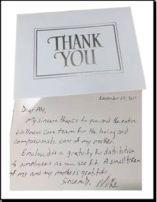 THANK
YOU
November 29, 2011
Dear
My sincere thanks to you and the entire
Wellness Care team for the loving and
compassionate care of my mother.
Enclosed is a gratuity for distribution
to employees as you see fit. A small token
of my and my mother's gratitude.
Sincerely,